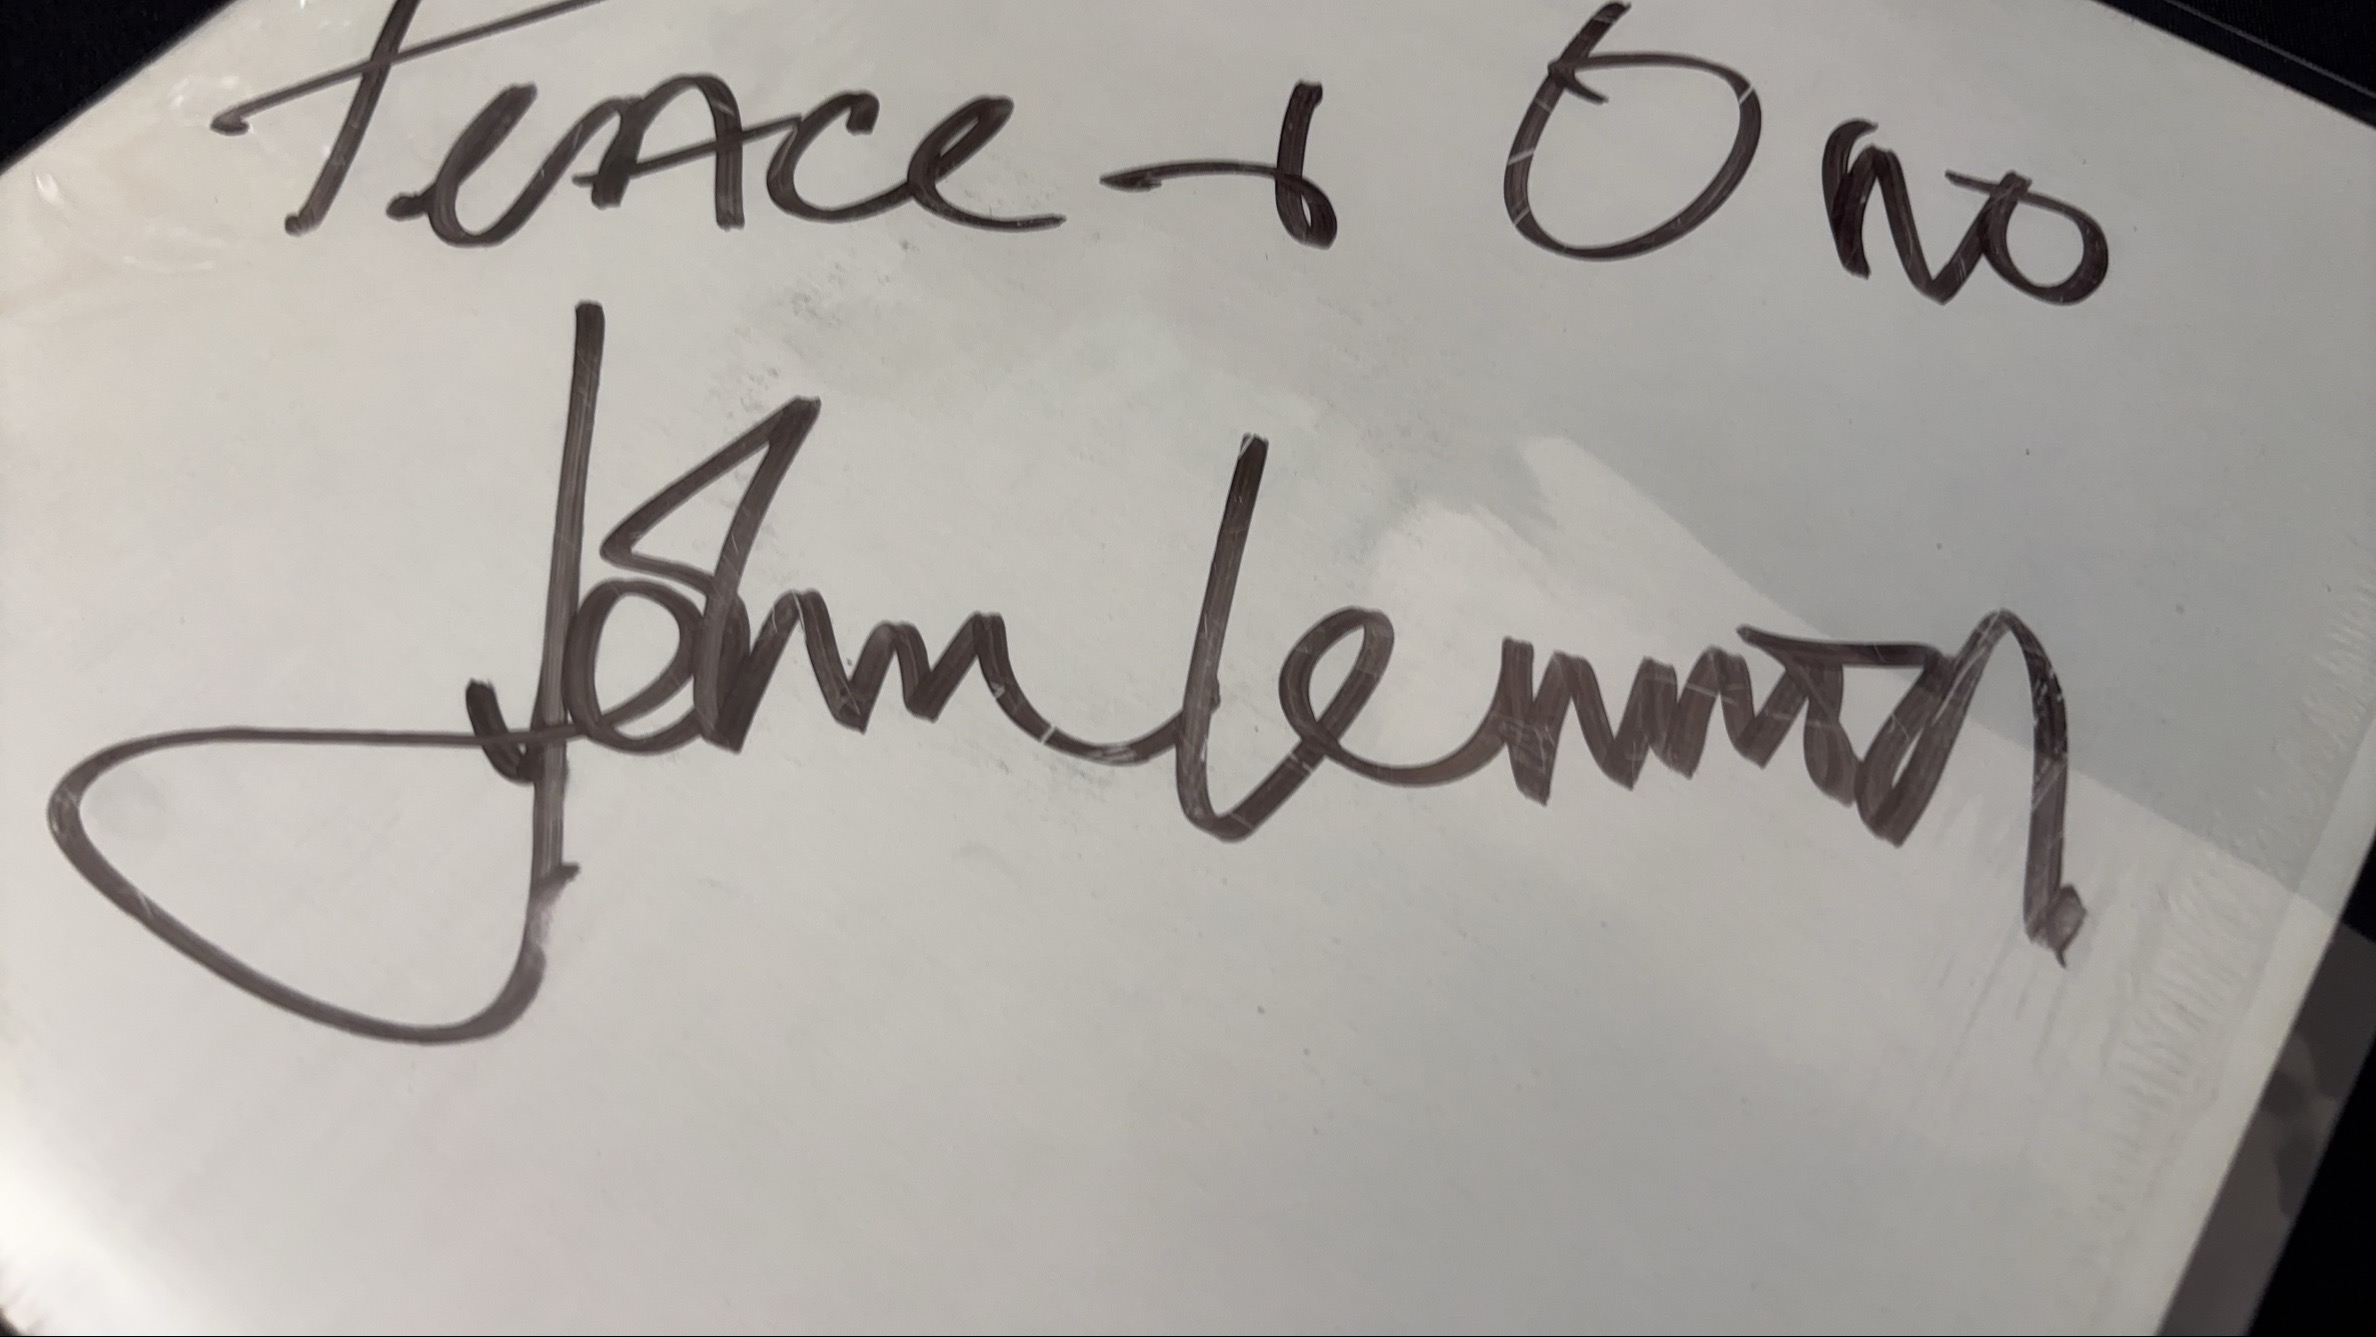 Peace + Ono
John Lennon